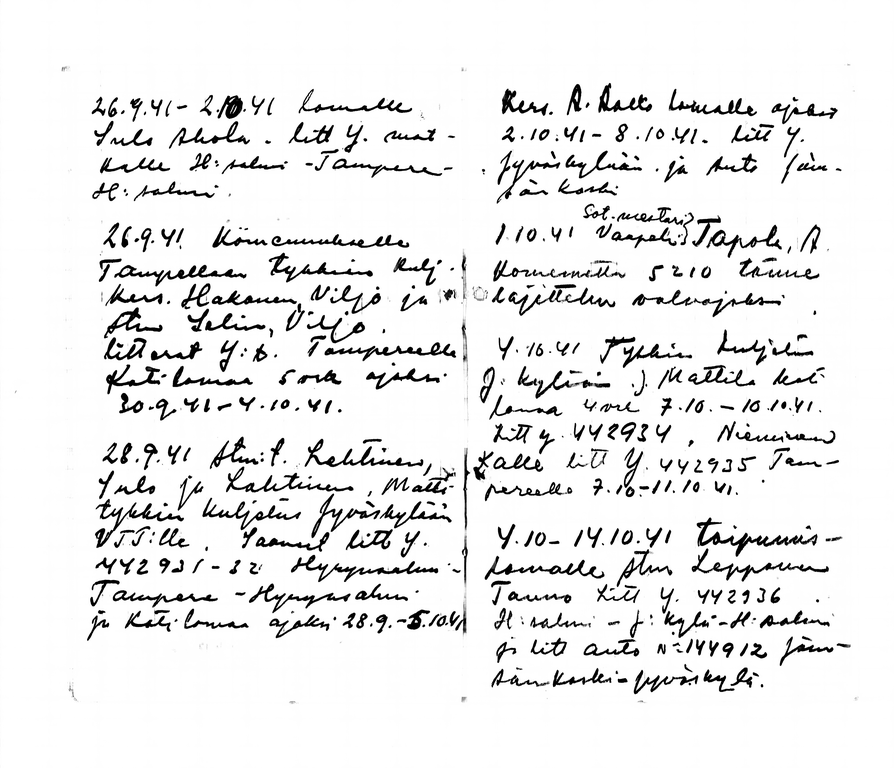 26.9.41 - 2.10.41 lomalle
Sulo Ahola. litt Y. mat-
kalle H:salmi - Tampere -
H:salmi.
26.9.41 Komennukselle
Tampellaan tykkien kulj.
Kers. Hakanen, Viljo ja
stm Salin, Viljo.
litterat Y:t. Tampereelle
Kotilomaa 5 vrk ajaksi
30.9.41 - 4.10.41.
28.9.41 stm:t. Lahtinen,
Sulo ja Lahtinen, Matti
tykkien kuljetus Jyväskylään
VTT:lle. Saaneet litt Y.
442931-32 Hyrynsalmi -
Tampere - Hyrynsalmi
ja Kotilomaa ajaksi 28.9. - 5.10.41
Kers. A. lomalle ajaksi
2.10.41 - 8.10.41. litt Y.
Jyväskylään ja auto Jäm-
sänkoski
Sot.mestari
1.10.41 Vaapeli Tapola, A.
Komennettu 5210 tänne
lajittelun valvojaksi
4.10.41 Tykkien kuljetus
J:kylään J. Mattila koti
lomaa 4 vrk 7.10. - 10.10.41.
Litt y. 442934, Nieminen
Kalle litt Y. 442935 Tam-
pereelle 7.10-11.10.41.
4.10 - 14.10.41 toipumis-
lomalle stm Leppänen
Tauno Litt Y. 442936
H:salmi - J:kylä - H:salmi
ja litt auto No 144912 Jäm-
sänkoski - Jyväskylä.